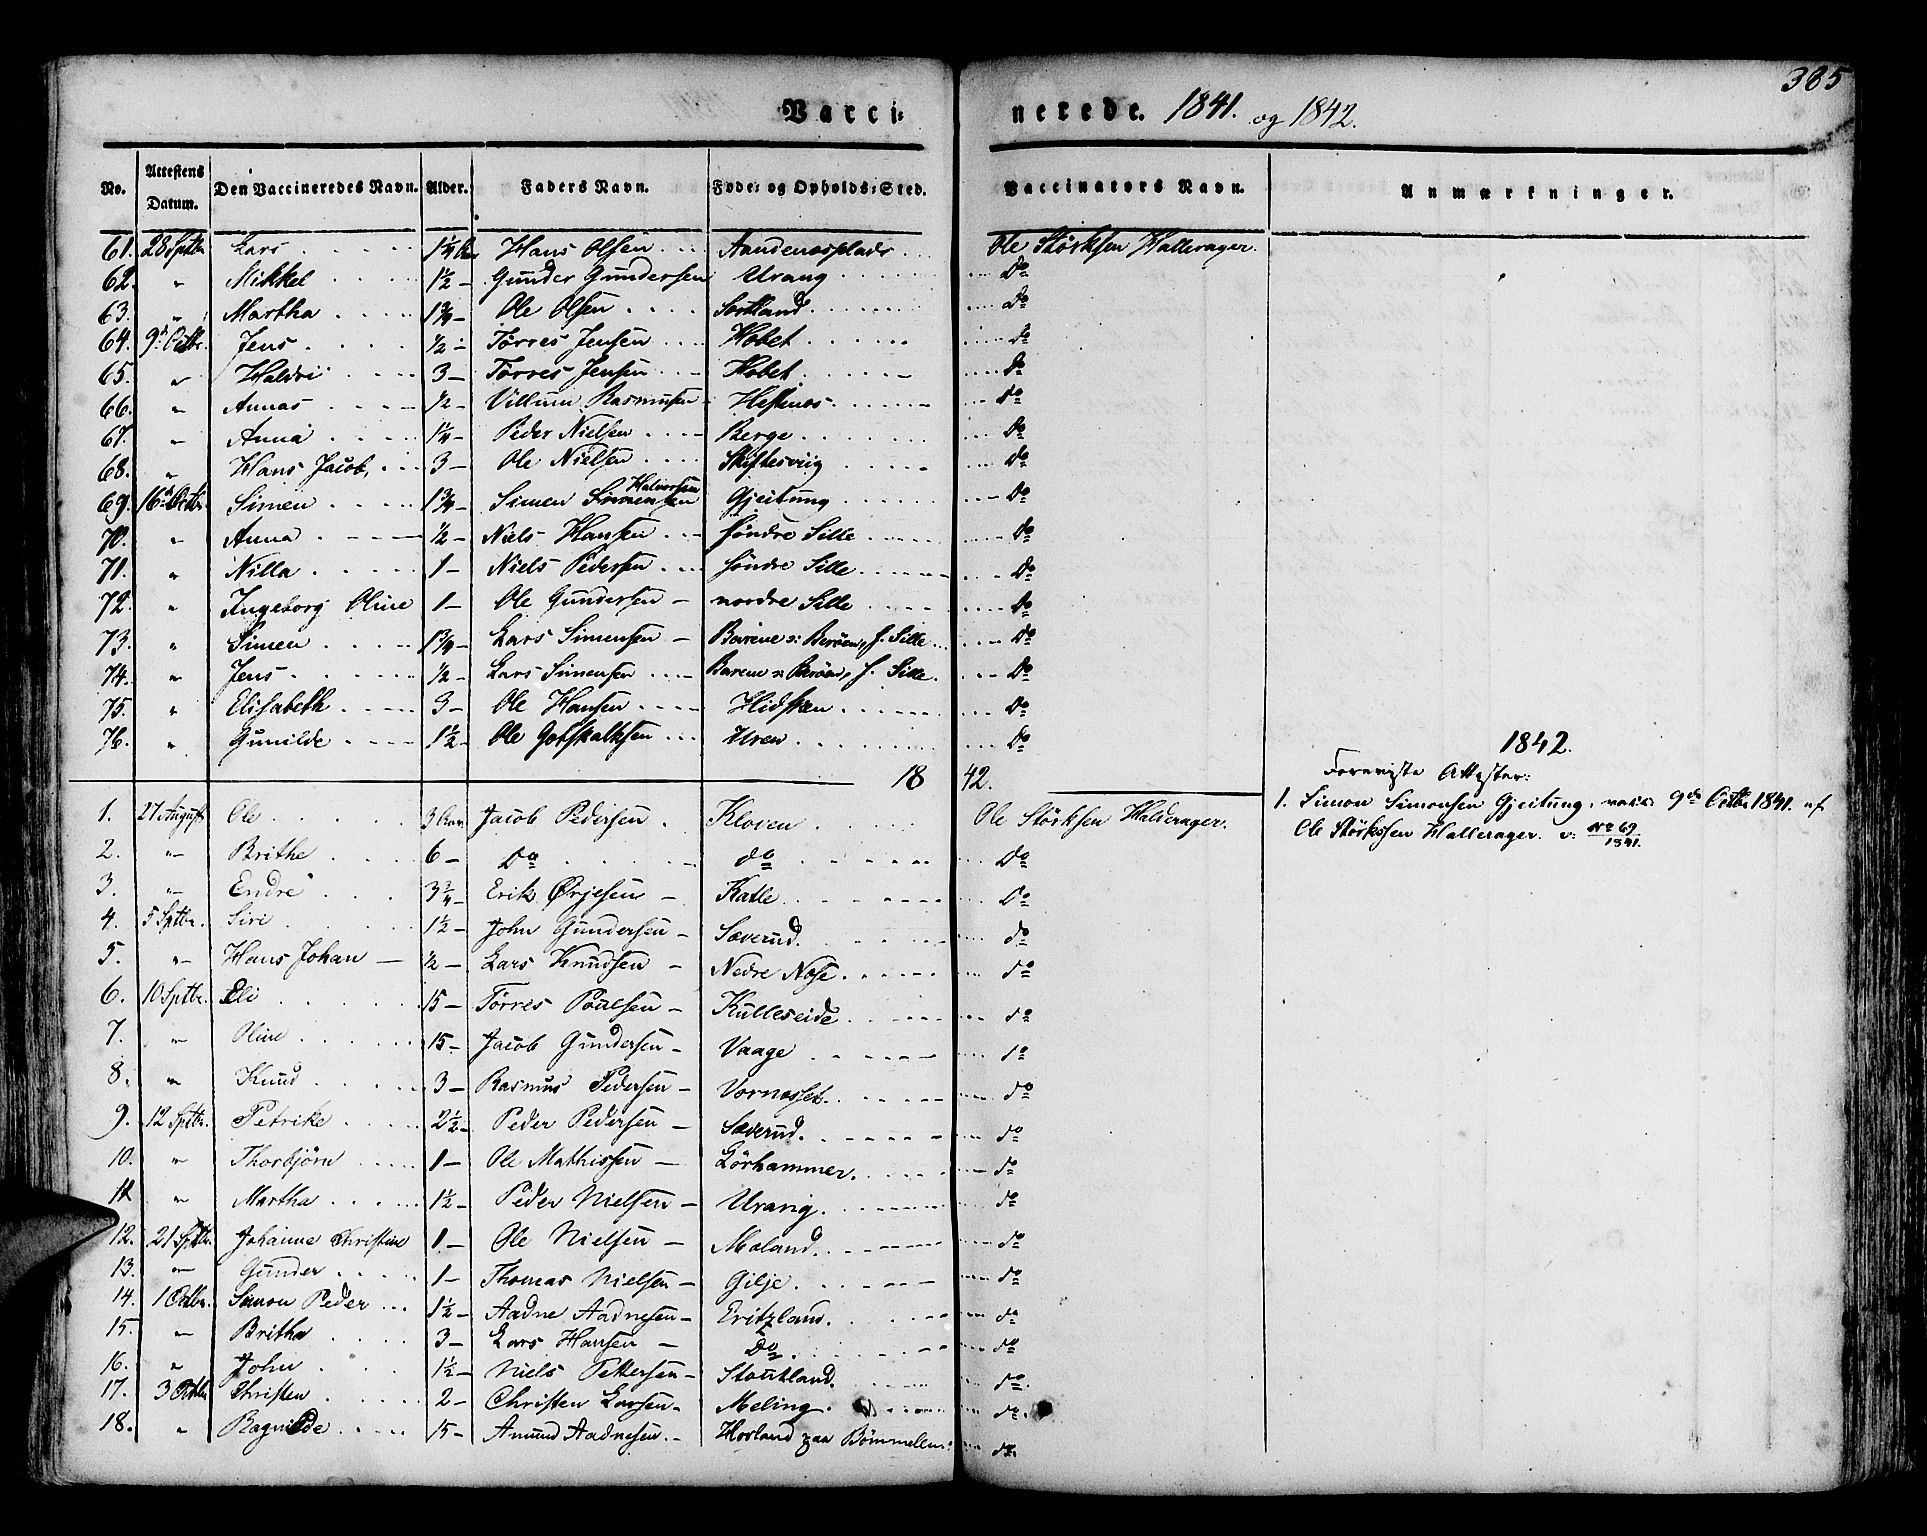 385
Vacci- nerede. 1841. og 1842.
No. Attestens Datum. Den Vaccineredes Navn. Alder. Faders Navn. Føde- og Opholds-Sted. Vaccinators Navn. Anmærkninger.
61. 28 Sptbr. Lars 1¼ Hans Olsen Aandenæsplads Ole Størksen Hallerager.
62. " Mikkel 1½ – Gunder Gundersen Urang Do
63. " Martha 1¾ – Ole Olsen Sortland do
64. 9de Octbr. Jens ½ – Tørres Jensen Hobet do
65. " Haldri 3 – Tørres Jensen Hobet do
66. " Annas ½ – Villum Rasmusen Hestenæs do
67. " Anna 1¼ – Peder Nielsen Berge Do
68. " Hans Jacob 3 – Ole Nielsen Skiftesviig Do
69. 16de Octbr. Simen 1¾ – Simen Simensen Halversen Gjeitung Do
70. " Anna ½ – Niels Hansen søndre Sille Do
71. " Nilla 1 – Niels Pedersen søndre Sille Do
72. " Ingeborg Oline 1 – Ole Gundersen – nordre Sille Do
73. " Simen 1¾ – Lars Simensen – Barene v: Berøen, s. Sille Do
74. " Jens ½ – Lars Simensen Barene v: Berøen, s. Sille. Do
75. " Elisabeth 3 – Ole Hansen Hidsken Do
76. " Gunilde 1½ – Ole Gotskalksen Uren Do
1842.
1. 27 August Ole 3 Aar Jacob Pedersen Kloven Ole Størksen Halderager.
2. " Brithe 6 – Do do Do
3. " Endre 3¾ – Erik Ørjesen – Katle Do
4. 5 Sptbr. Siri 1½ – John Gundersen – Sæverud. do
5. " Hans Johan – ½ – Lars Knudsen – Nedre Nose. do
6. 10 Sptbr. Eli 15 – Tørres Poalsen – Kulleseide do
7. " Oline 15 – Jacob Gundersen – Vaage do
8. " Knud 3 – Rasmus Pedersen – Vornesset. do
9. 12 Sptbr. Petrike 2½ – Peder Pedersen – Sæverud. do
10. " Thorbjørn 1 – Ole Mathissen – Lørhammer. do
11. " Martha 1½ – Peder Nielsen – Urang. do
12. 21 Sptbr. Johanne Christine 1 – Ole Nielsen – Moland. do
13. " Gunder 1 – Thomas Nielsen – Gilje. do
14. 1 Octbr. Simon Peder 1½ – Aadne Aadnesen – Eritzland. do
15. " Britha 3 – Lars Hansen – Do. do
16. " John 1½ – Niels Pettersen – Stoutland. do.
17. 3 Octbr. Christen 2 – Christen Larsen – Meling. do.
18. " Ragnilde 15 – Amund Aadnesen. – Hovland paa Bømmelen: do.
1842.
Foreviste Attester:
1. Simon Simonsen Gjeitung. vacc: 9de Octbr 1841. af
Ole Størkssen Hallerager. v: No 69 / 1841.